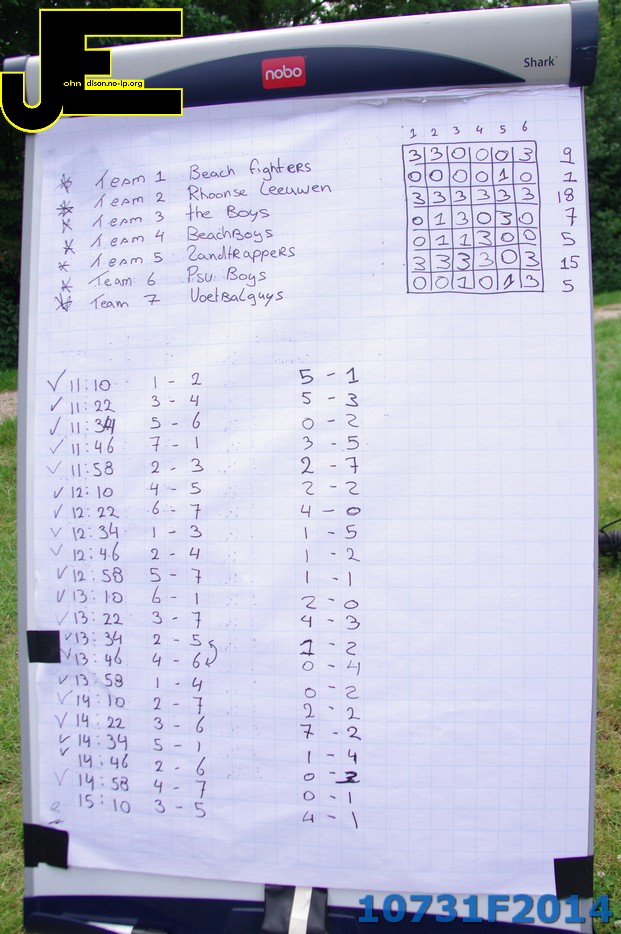 JE
ohn dison.no-ip.org
nobo
Shark
1 2 3 4 5 6
Team 1 Beach fighters 3 3 0 0 0 3 9
Team 2 Rhoonse Leeuwen 0 0 0 0 1 0 1
Team 3 the Boys 3 3 3 3 3 3 18
Team 4 BeachBoys 0 1 3 0 3 0 7
Team 5 Zandtrappers 0 1 1 3 0 0 5
Team 6 Psu Boys 3 3 3 3 0 3 15
Team 7 Voetbalguys 0 0 1 0 1 3 5
✓ 11:10 1 - 2 5 - 1
✓ 11:22 3 - 4 5 - 3
✓ 11:34 5 - 6 0 - 2
✓ 11:46 7 - 1 3 - 5
✓ 11:58 2 - 3 2 - 7
✓ 12:10 4 - 5 2 - 2
✓ 12:22 6 - 7 4 - 0
✓ 12:34 1 - 3 1 - 5
✓ 12:46 2 - 4 1 - 2
✓ 12:58 5 - 7 1 - 1
✓ 13:10 6 - 1 2 - 0
✓ 13:22 3 - 7 4 - 3
✓ 13:34 2 - 5 1 - 2
✓ 13:46 4 - 6 0 - 4
✓ 13:58 1 - 4 0 - 2
✓ 14:10 2 - 7 2 - 2
✓ 14:22 3 - 6 7 - 2
✓ 14:34 5 - 1 1 - 4
✓ 14:46 2 - 6 0 -
✓ 14:58 4 - 7 0 - 1
15:10 3 - 5 4 - 1
10731F2014